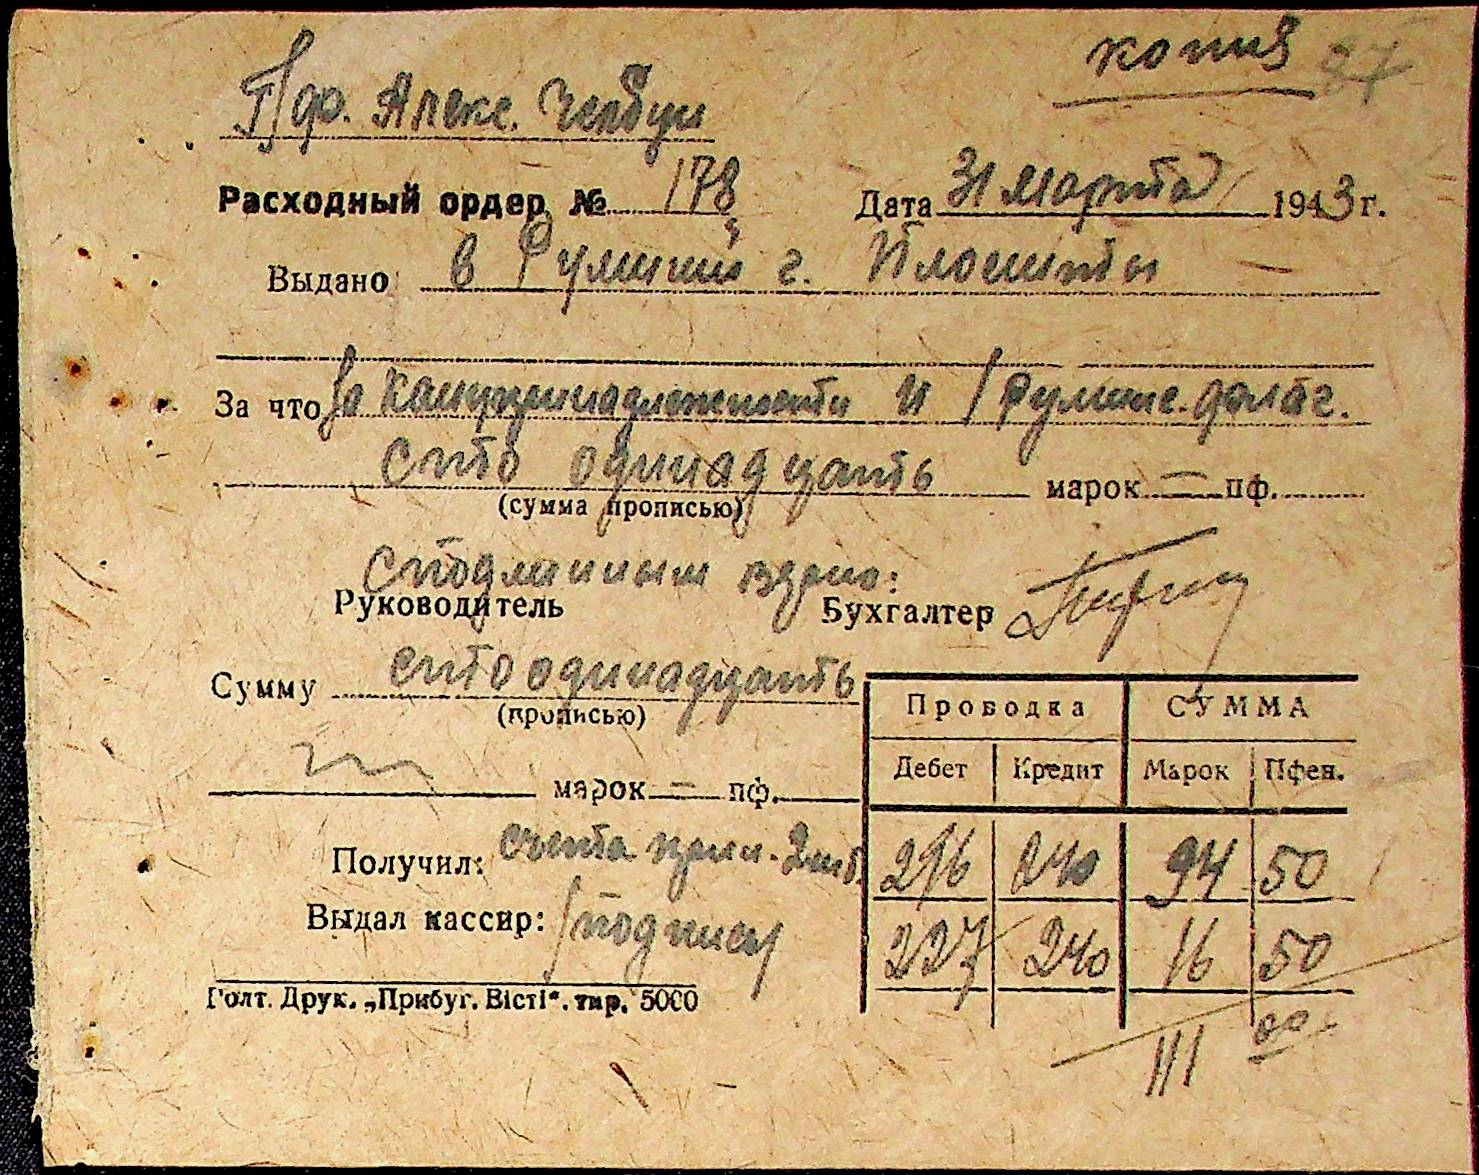 копия 87
Пдф. Алекс.
Расходный ордер № 178 Дата 31 марта 1943 г.
Выдано в Румынии г. Плоешты
За что За канцпринадлежности и
сто одинадцать марок = пф.
(сумма прописью)
С подлинным верно:
Руководитель Бухгалтер
Сумму сто одинадцать
(прописью)
марок = пф.
Получил: счета прил.
Выдал кассир: /подпись/
Голт. Друк. „Прибуг. Вісті“. тир. 5000
Проводка СУММА
Дебет Кредит Марок Пфен.
216 240 94 50
227 240 16 50
111 00